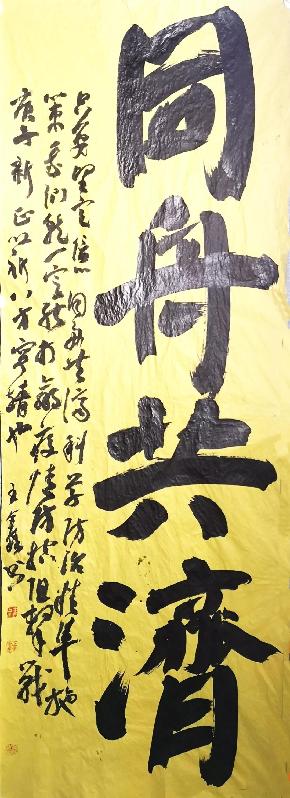 同舟共济
只要坚定信心同舟共济科学防治精准施
策我们就一定能打赢疫情防控阻击战
庚子新正以祈八方宁靖也